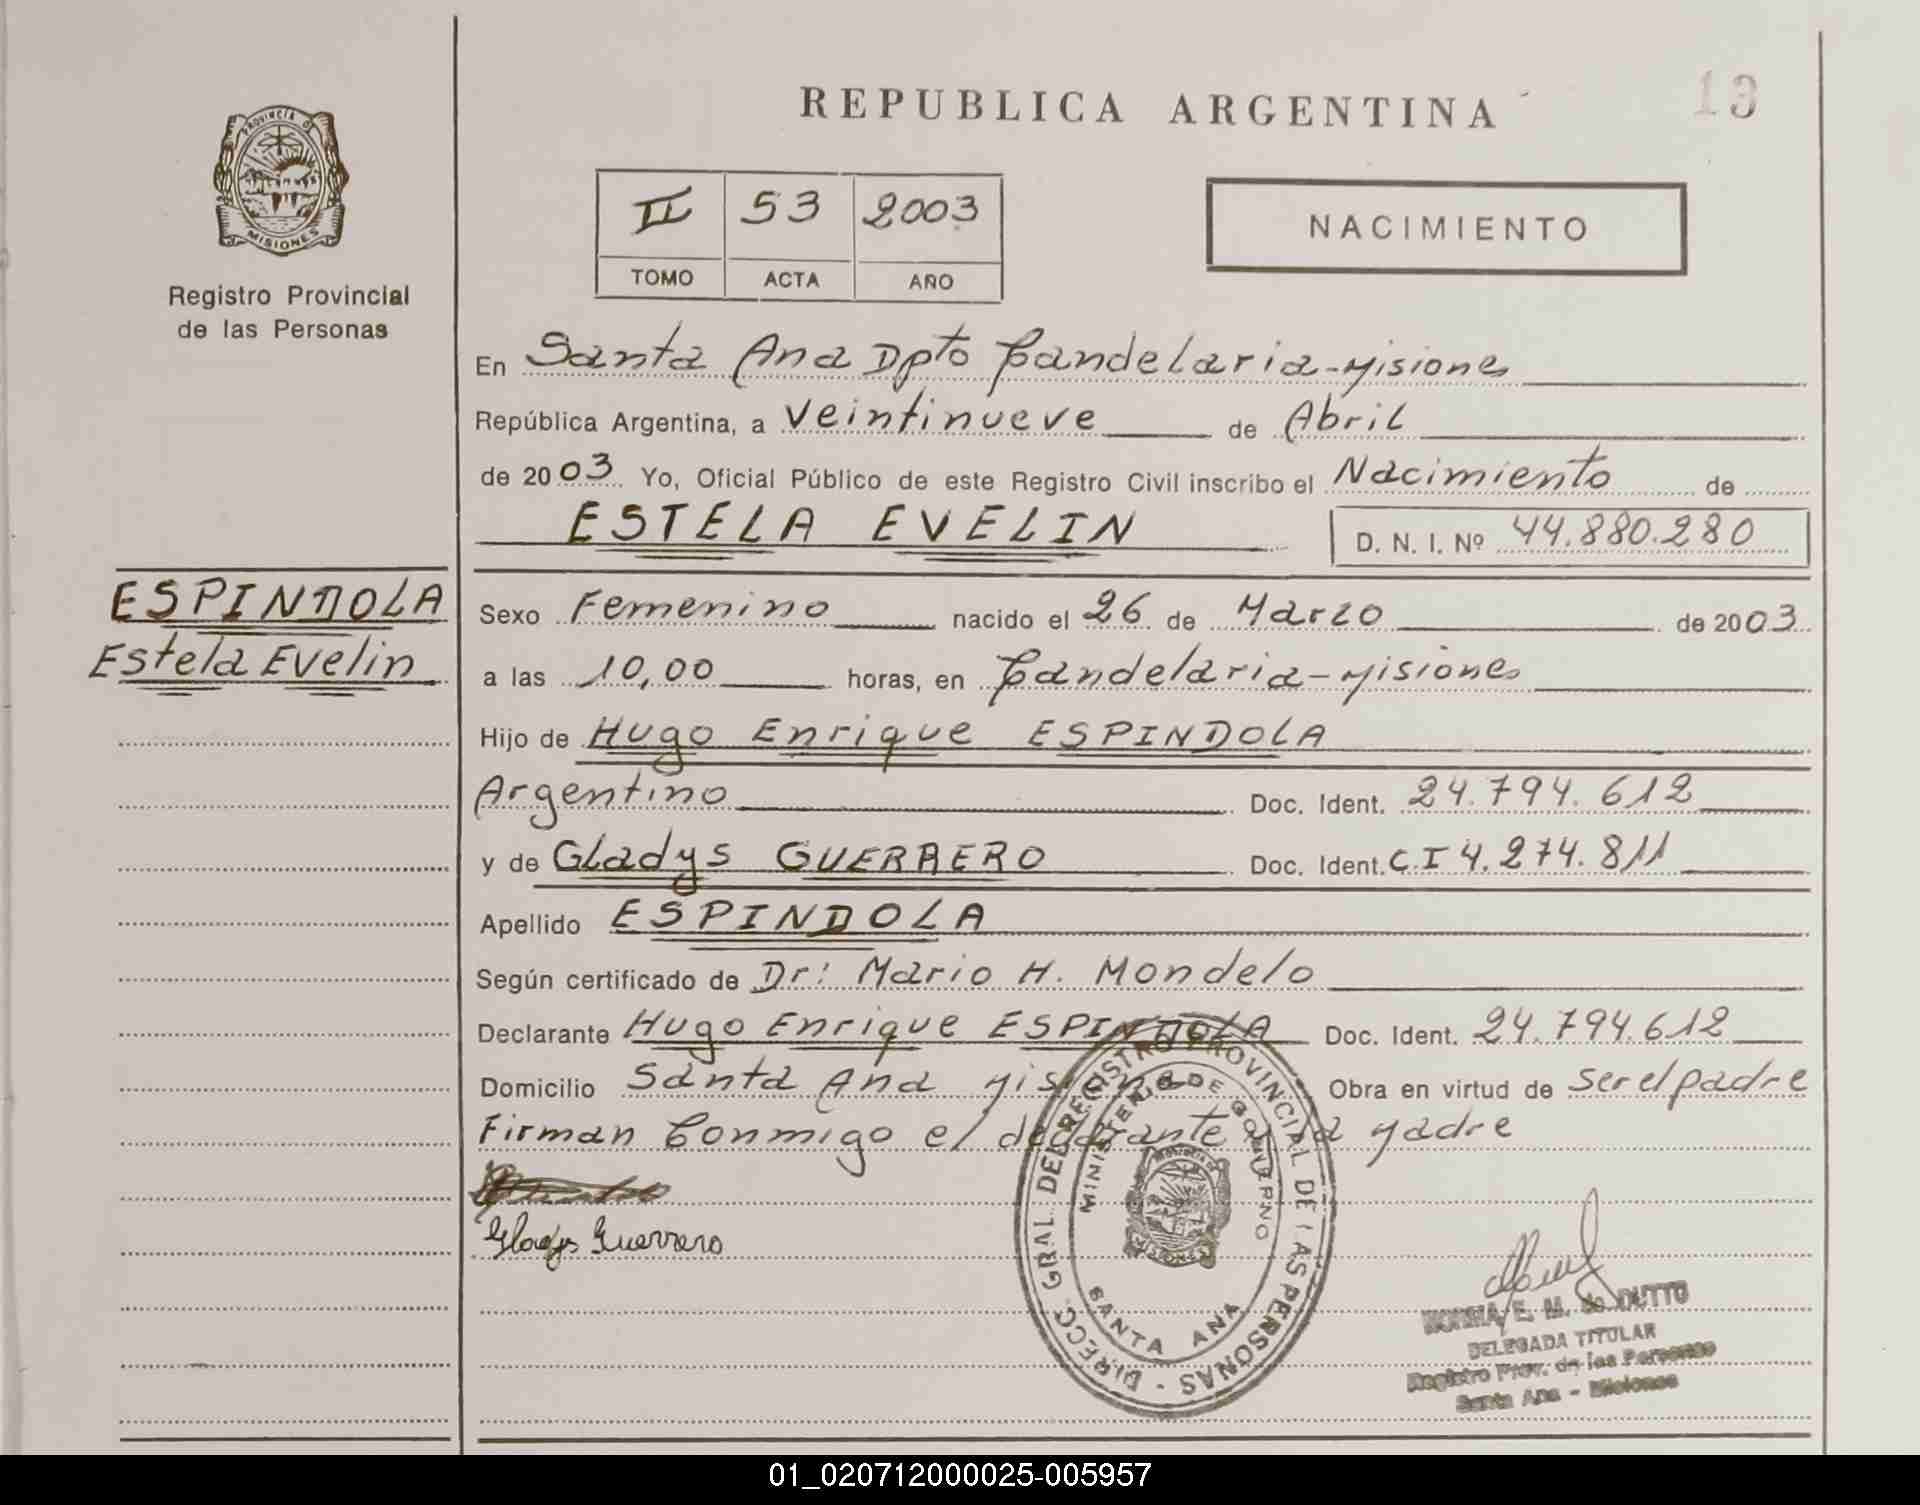 REPUBLICA ARGENTINA
13
PROVINCIA DE
MISIONES
Registro Provincial
de las Personas
II 53 2003
TOMO ACTA AÑO
NACIMIENTO
En Santa Ana Dpto Candelaria-Misiones
República Argentina, a Veintinueve de Abril
de 2003 Yo, Oficial Público de este Registro Civil inscribo el Nacimiento de
ESTELA EVELIN D. N. I. Nº 44.880.280
ESPINDOLA
Estela Evelin
Sexo Femenino nacido el 26 de Marzo de 2003
a las 10,00 horas, en Candelaria-Misiones
Hijo de Hugo Enrique ESPINDOLA
Argentino Doc. Ident. 24.794.612
y de Gladys GUERRERO Doc. Ident. C.I 4.274.811
Apellido ESPINDOLA
Según certificado de Dr: Mario H. Mondelo
Declarante Hugo Enrique ESPINDOLA Doc. Ident. 24.794.612
Domicilio Santa Ana Misiones Obra en virtud de ser el padre
Firman Conmigo el declarante y la Madre
Gladys Guerrero
DIRECC. GRAL. DEL REGISTRO PROVINCIAL DE LAS PERSONAS -
MINISTERIO DE GOBIERNO
MISIONES
SANTA ANA
NORMA E. M. de DUTTO
DELEGADA TITULAR
Registro Prov. de las Personas
Santa Ana - Misiones
01_020712000025-005957